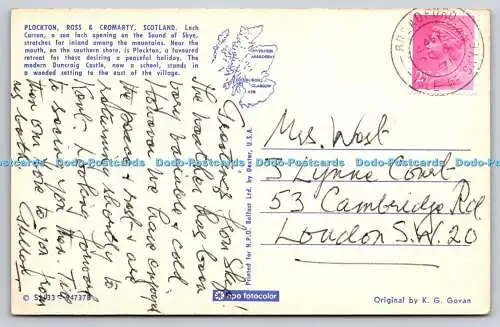 PLOCKTON, ROSS & CROMARTY, SCOTLAND. Loch
Carron, a sea loch opening on the Sound of Skye,
stretches far inland among the mountains. Near the
mouth, on the southern shore, is Plockton, a favoured
retreat for those desiring a peaceful holiday. The
modern Duncraig Castle, now a school, stands in
a wooded setting to the east of the village.
Greetings from Skye!
The weather has been
very variable & cold
However we have enjoyed
the peace & rest & are
returning shortly to
Kent. Looking forward
to seeing you then.
from
Mrs. West
3 Lynne Court
53 Cambridge Rd
London S.W.20
Printed for N.P.O. Belfast Ltd. by Dexter, U.S.A.
npo fotocolor
Original by K. G. Govan
Dodo-Postcards Dodo-Postcards Dodo-Postcards Dodo-Postcards Dodo-Postcards